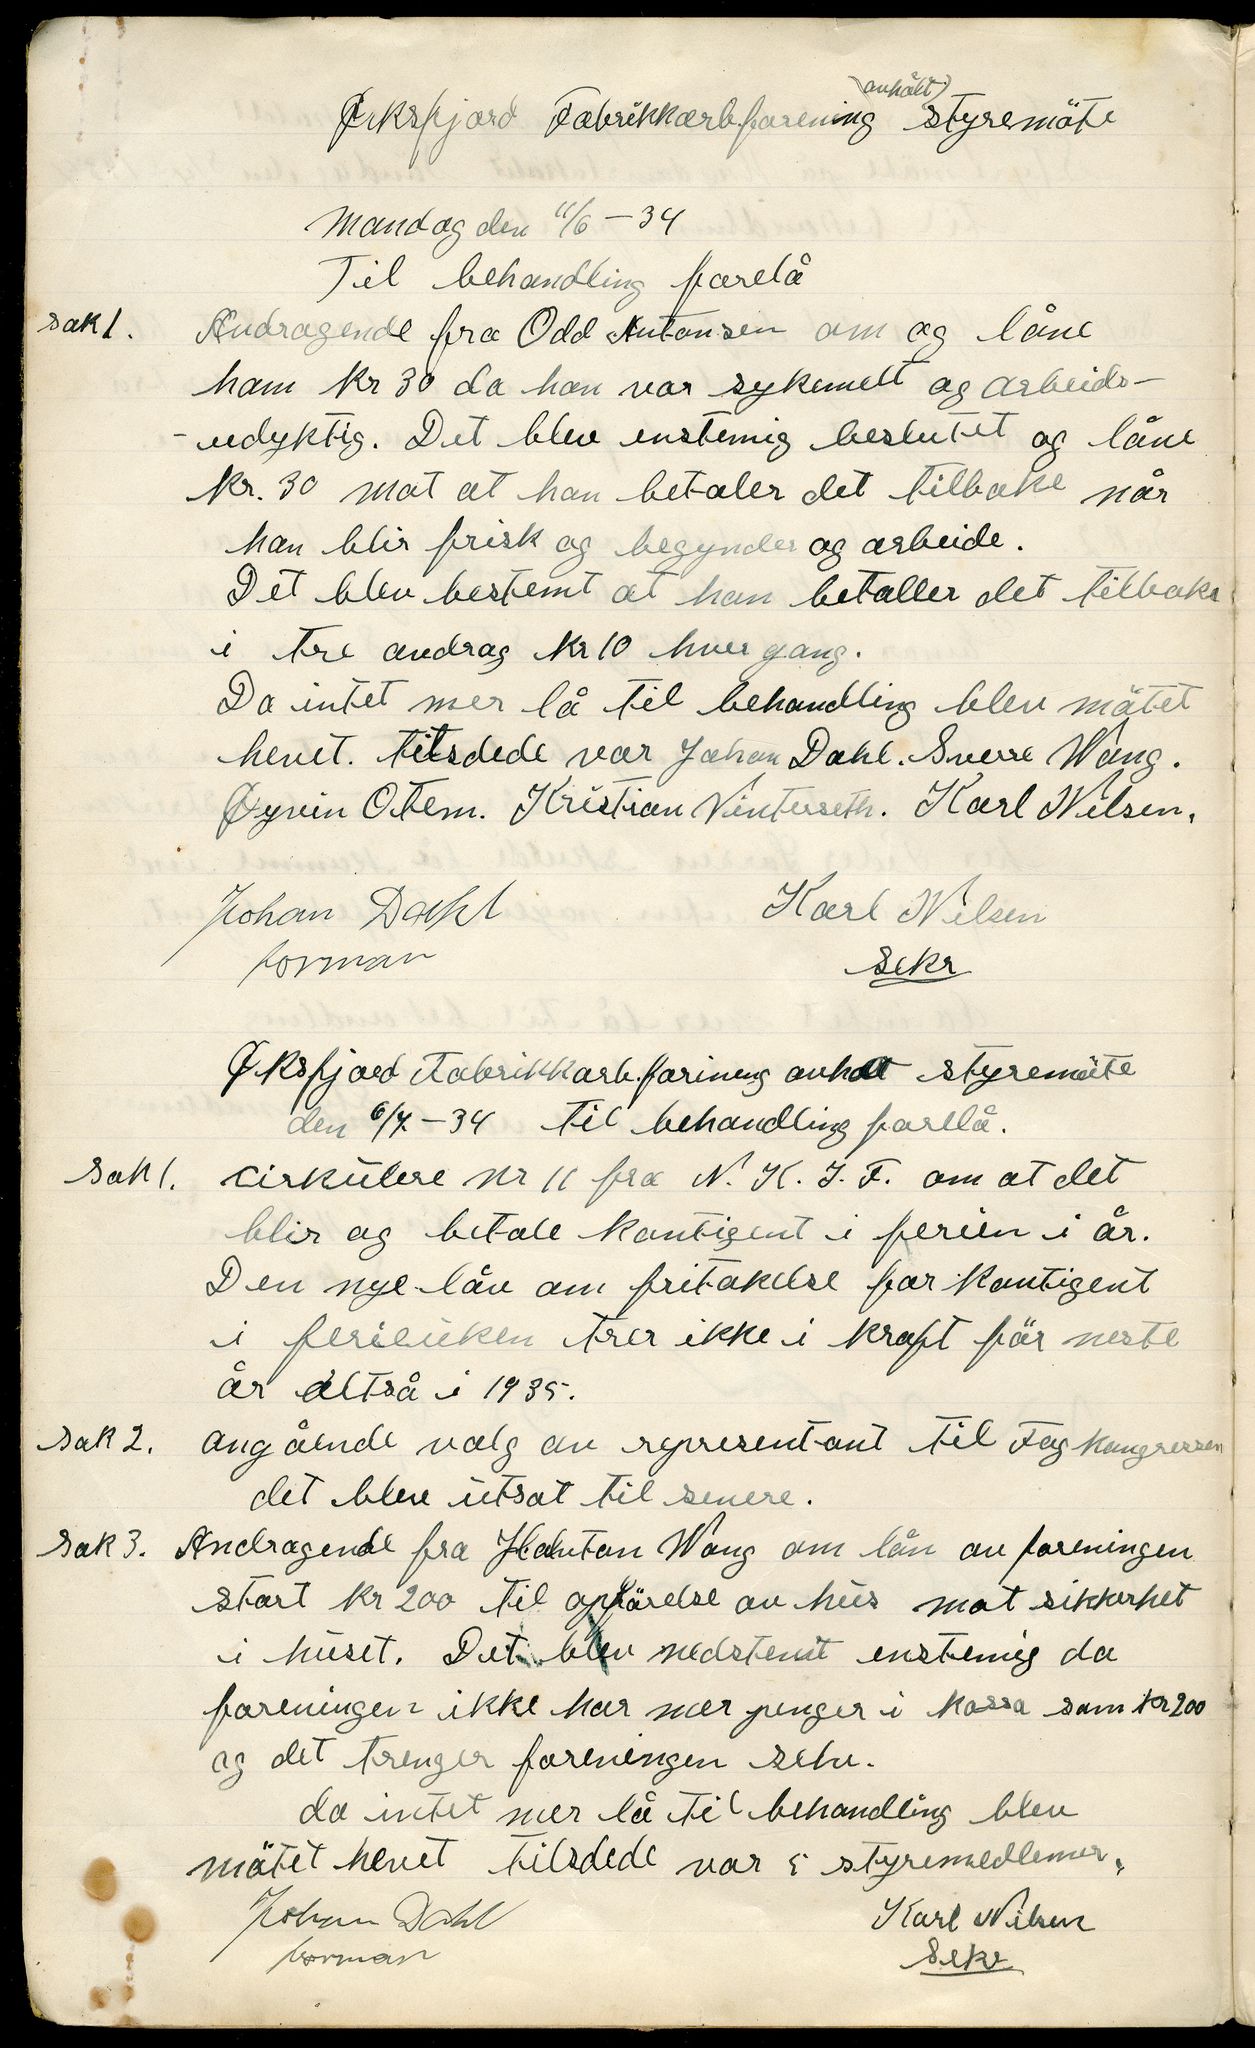 Øksfjord Fabrikkarb.forening avhålt styremöte
Mandag den 11/6 – 34
Til behandling forelå
sak 1. Andragende fra Odd Antonsen om og låne
ham kr 30 da han var sykemelt og arbeids-
-udyktig. Det blev enstemig beslutet og låne
kr. 30 mot at han betaler det tilbake når
han blir frisk og begynder og arbeide.
Det blev bestemt at han betaller det tilbake
i tre avdrag kr 10 hver gang.
Da intet mer lå til behandling blev mötet
hevet. tilsdede var Johan Dahl. Sverre Wang.
Øyvin Otem. Kristian Vinterseth. Karl Nilsen.
Johan Dahl Karl Nilsen
forman Sekr
Øksfjord Fabrikkarb.forining avholt styremöte
den 6/7 – 34 til behandling forelå.
Sak 1. Cirkulere nr 11 fra N. K. I. F. om at det
blir og betale kontigent i ferien i år.
Den nye låv om fritakelse for kontigent
i ferieuken trer ikke i kraft för neste
år altså i 1935.
sak 2. angående valg av representant til Fagkongressen
det blev utsat til senere.
sak 3. Andragende fra Hanton Wang om lån av foreningen
stort kr 200 til opförelse av hus mot sikkerhet
i huset. Det blev nedstemt enstemig da
foreningen ikke har mer penger i kassa som kr 200
og det trenger foreningen selv.
da intet mer lå til behandling blev
mötet hevet tilsdede var 5 styremedlemer.
Johan Dahl Karl Nilsen
forman Sekr